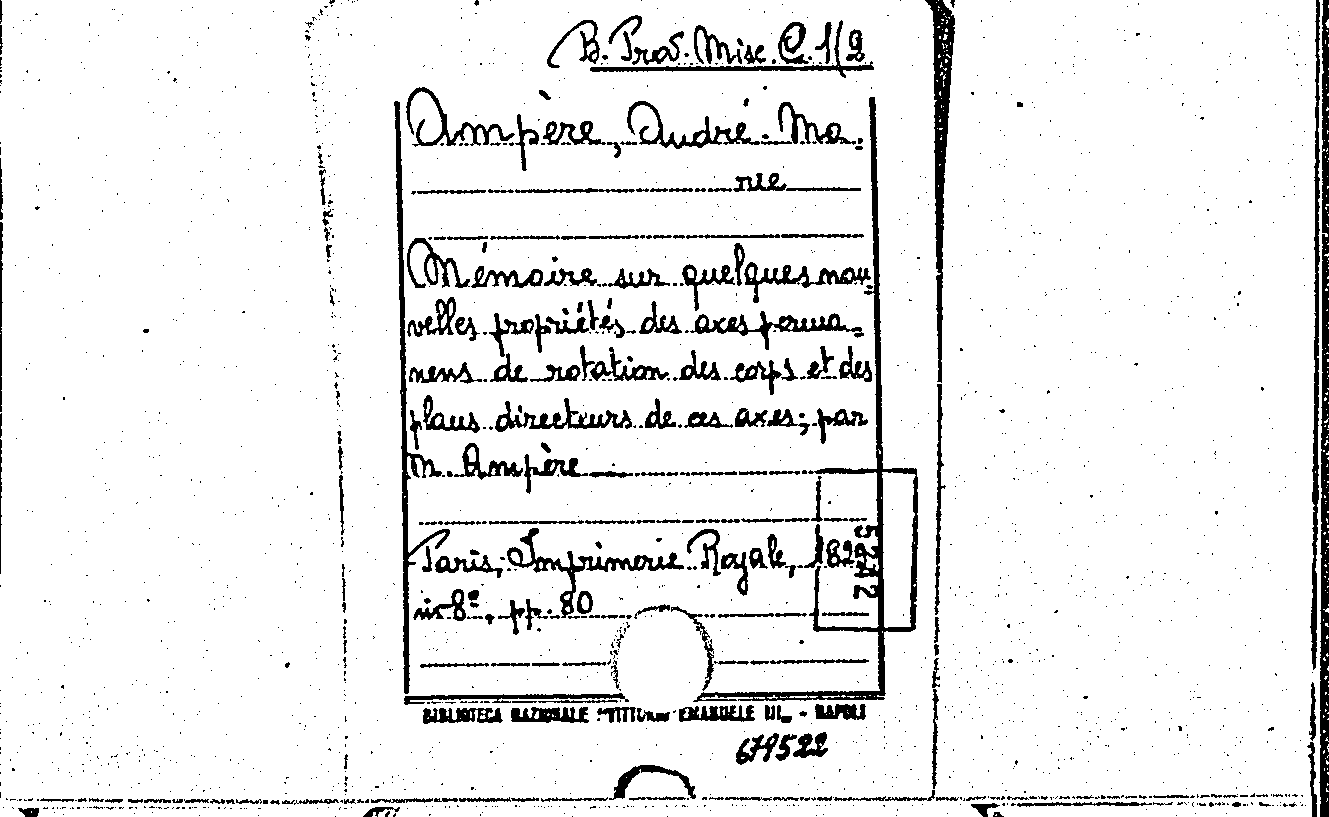 B. Prov. Misc. C. 1/2
Ampère, André-Ma-
rie
Mémoire sur quelques nou=
velles propriétés des axes perma=
nens de rotation des corps et des
plans directeurs de ces axes; par
M. Ampère
Paris, Imprimerie Royale,
in 8º, pp. 80
BIBLIOTECA NAZIONALE "VITTORIO EMANUELE III" - NAPOLI
679522